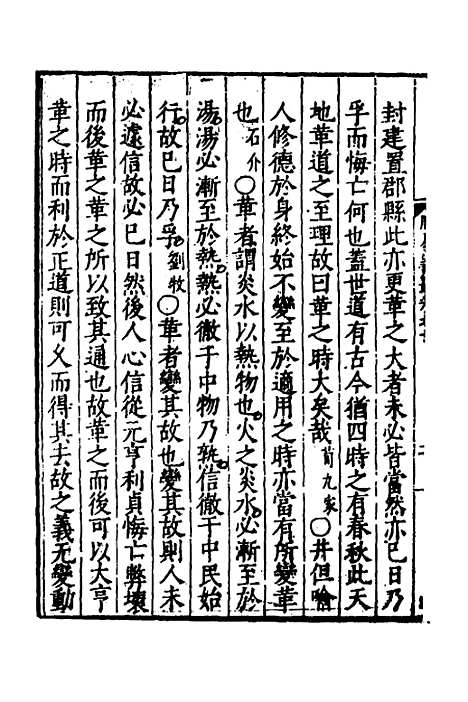 封建置郡縣此亦更革之大者未必皆當然亦已日乃
孚而悔亡何也蓋世道有古今猶四時之有春秋此天
地革道之至理故曰革之時大矣哉荀九家〇井但喻
人修德於身終始不變至於適用之時亦當有所變革
也石介〇革者謂炎水以熱物也火之炎水必漸至於
湯湯必漸至於熱熱必徹于中物乃熟信徹于中民始
行故已日乃孚劉牧〇革者變其故也變其故則人未
必遽信故必已日然後人心信從元亨利貞悔亡弊壞
而後革之革之所以致其通也故革之而後可以大亨
革之時而利於正道則可乆而得其去故之義无變動